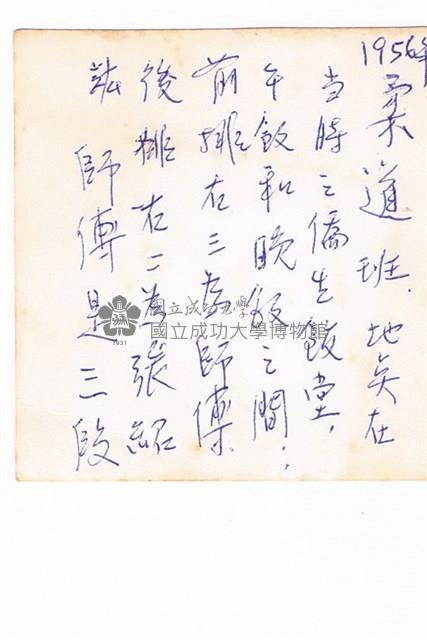 1956年
柔道班.地点在
当時之僑生飯堂,
午飯和晚飯之間.
前排右三為師傅.
後排右二為張紹
師傅是三段
國立成功大學
國立成功大學博物館
1931